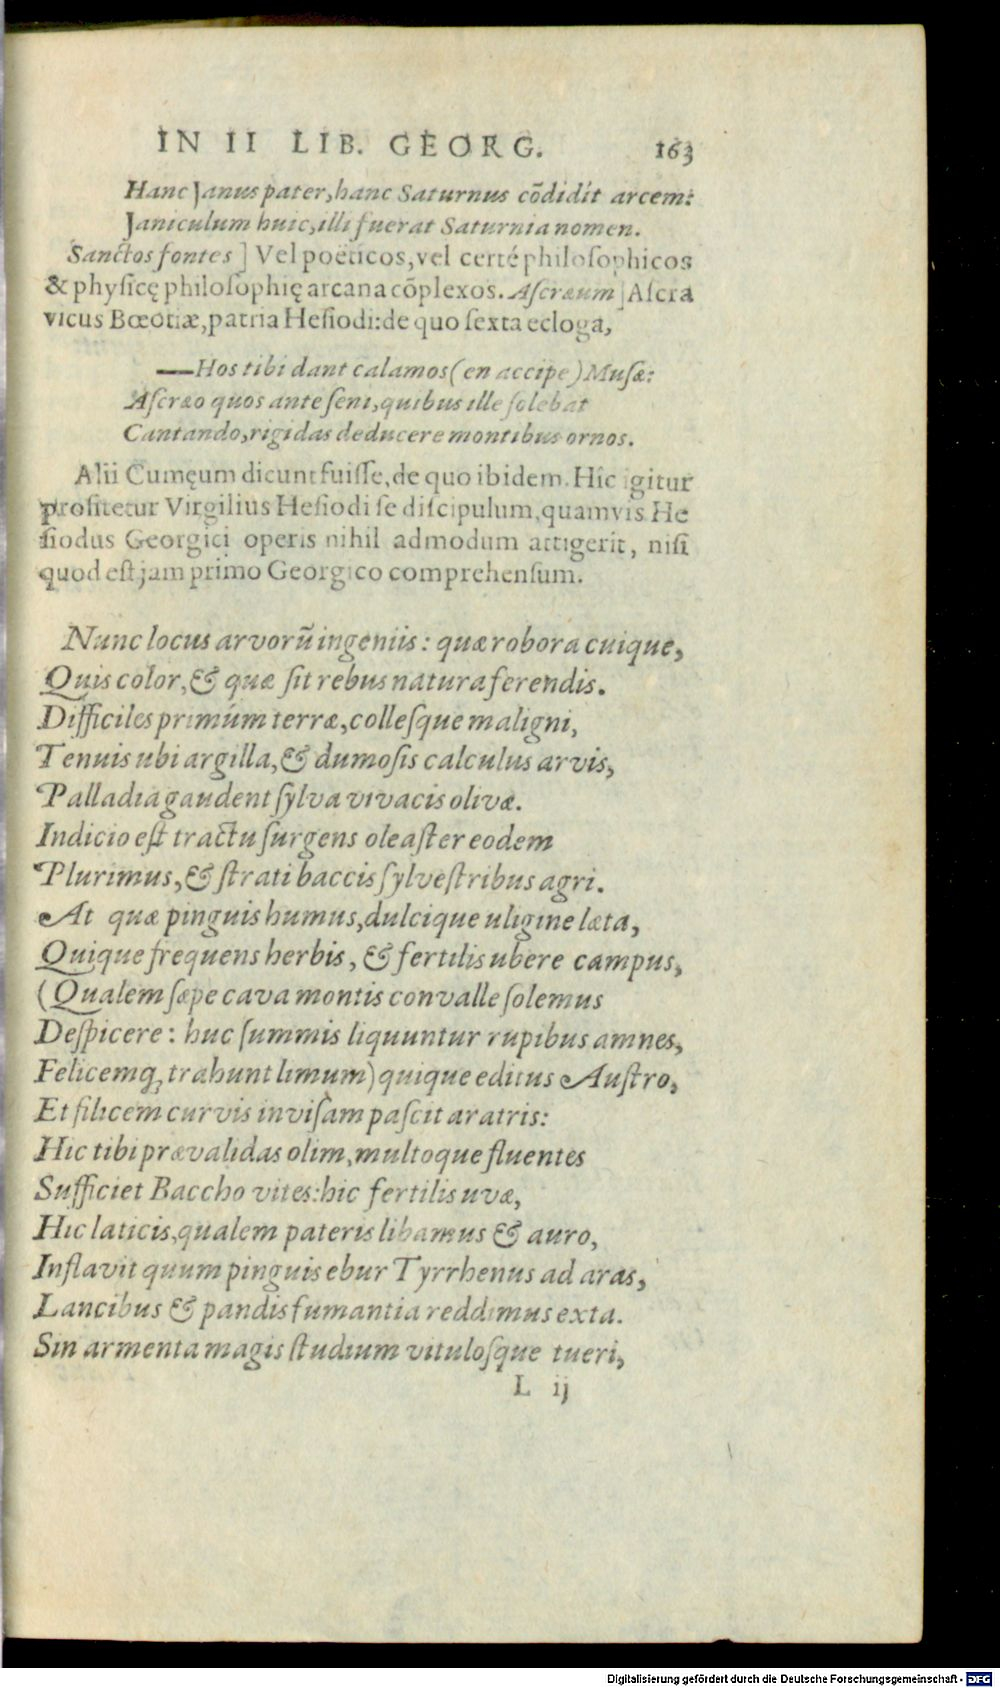 IN II LIB. GEORG. 163
Hanc Janus pater, hanc Saturnus cōdidit arcem:
Janiculum huic, illi fuerat Saturnia nomen.
Sanctos fontes] Vel poëticos, vel certé philoſophicos
& phyſicę philoſophię arcana cōplexos. Aſcræum] Aſcra
vicus Bœotiæ, patria Heſiodi: de quo ſexta ecloga,
—Hos tibi dant calamos (en accipe) Muſæ:
Aſcræo quos ante ſeni, quibus ille ſolebat
Cantando, rigidas deducere montibus ornos.
Alii Cumęum dicunt fuiſſe, de quo ibidem. Hîc igitur
profitetur Virgilius Heſiodi ſe diſcipulum, quamvis He
ſiodus Georgici operis nihil admodum attigerit, niſi
quod eſt jam primo Georgico comprehenſum.
Nunc locus arvorũ ingeniis: quæ robora cuique,
Quis color, & quæ ſit rebus natura ferendis.
Difficiles primúm terræ, colleſque maligni,
Tenuis ubi argilla, & dumoſis calculus arvis,
Palladia gaudent ſylva vivacis olivæ.
Indicio eſt tractu ſurgens oleaſter eodem
Plurimus, & ſtrati baccis ſylveſtribus agri.
At quæ pinguis humus, dulcique uligine læta,
Quique frequens herbis, & fertilis ubere campus,
(Qualem ſæpe cava montis convalle ſolemus
Deſpicere: huc ſummis liquuntur rupibus amnes,
Felicemq́; trahunt limum) quique editus Auſtro,
Et filicem curvis inviſam paſcit aratris:
Hic tibi prævalidas olim, multoque fluentes
Sufficiet Baccho vites: hic fertilis uvæ,
Hic laticis, qualem pateris libamus & auro,
Inflavit quum pinguis ebur Tyrrhenus ad aras,
Lancibus & pandis fumantia reddimus exta.
Sin armenta magis ſtudium vituloſque tueri,
L ij
Digitalisierung gefördert durch die Deutsche Forschungsgemeinschaft - DFG